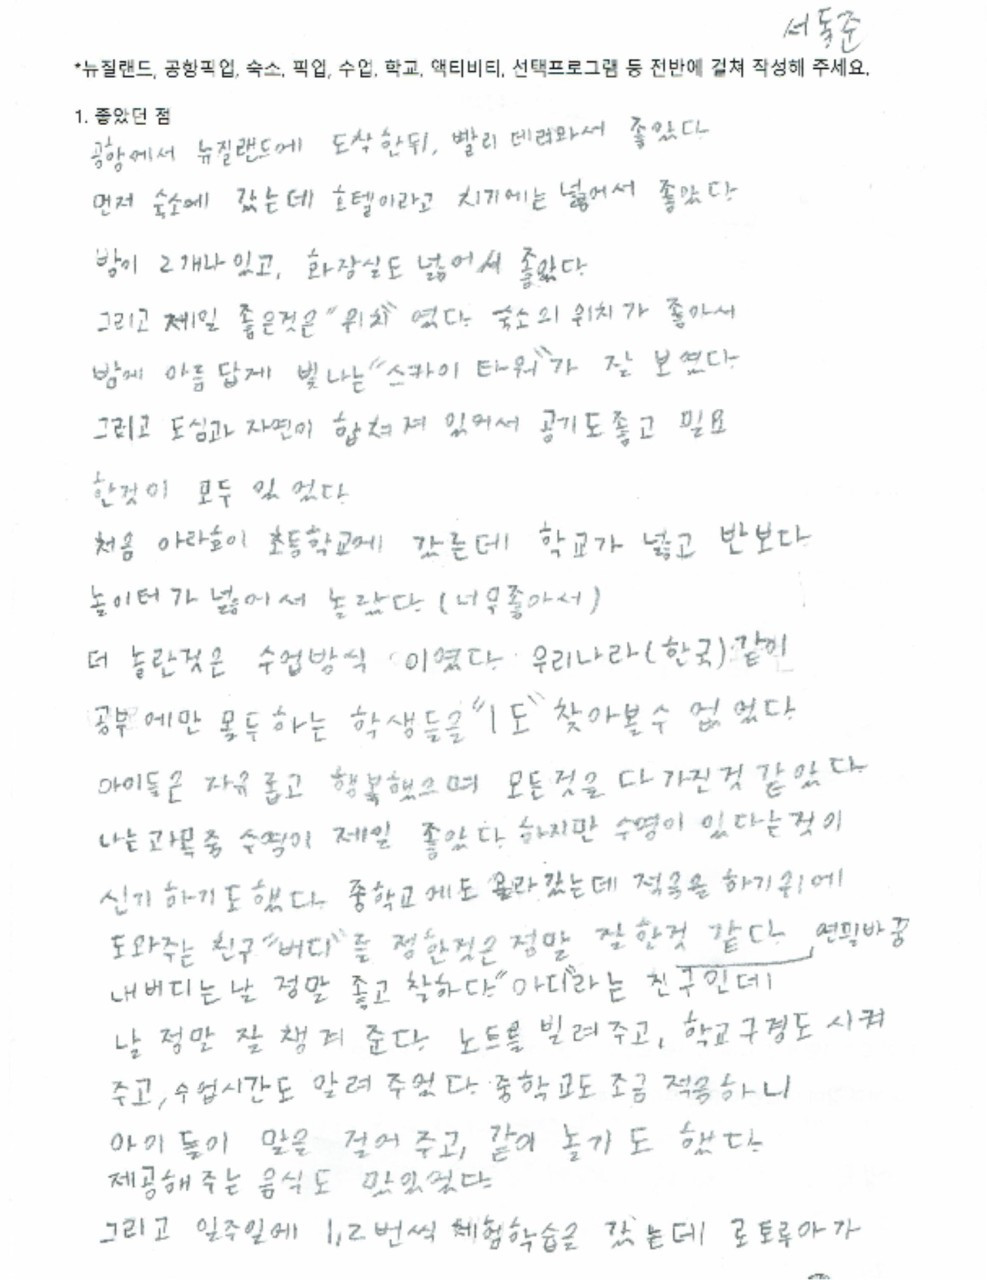 서동준
*뉴질랜드, 공항픽업, 숙소, 픽업, 수업, 학교, 액티비티, 선택프로그램 등 전반에 걸쳐 작성해 주세요.
1. 좋았던 점
공항에서 뉴질랜드에 도착한뒤, 빨리 데려와서 좋았다
먼저 숙소에 갔는데 호텔이라고 치기에는 넓어서 좋았다
방이 2개나 있고, 화장실도 넓어서 좋았다
그리고 제일 좋은것은 "위치" 였다 숙소의 위치가 좋아서
밤에 아름답게 빛나는 "스카이 타워"가 잘 보였다
그리고 도심과 자연이 합쳐져 있어서 공기도좋고 필요
한것이 모두 있었다
처음 아라호이 초등학교에 갔는데 학교가 넓고 반보다
놀이터가 넓어서 놀랐다 (너무좋아서)
더 놀란것은 수업방식 이였다 우리나라(한국)같이
공부에만 몰두하는 학생들을 "1도" 찾아볼수 없었다
아이들은 자유롭고 행복했으며 모든것을 다 가진것 같았다
나는 과목중 수학이 제일 좋았다 하지만 수영이 있다는것이
신기하기도 했다. 중학교에도 올라갔는데 적응을 하기위에
도와주는 친구 "버디"를 정한것은 정말 잘한것 같다 연믜바중
내버디는 날 정말 좋고 착하다 "아디"라는 친구인데
날 정말 잘 챙겨 준다 노트를 빌려주고, 학교구경도 시켜
주고, 수업시간도 알려 주었다 중학교도 조금 적응하니
아이들이 말을 걸어 주고, 같이 놀기도 했다
제공해주는 음식도 맛있었다
그리고 일주일에 1,2번씩 체험학습을 갔는데 로토루아가